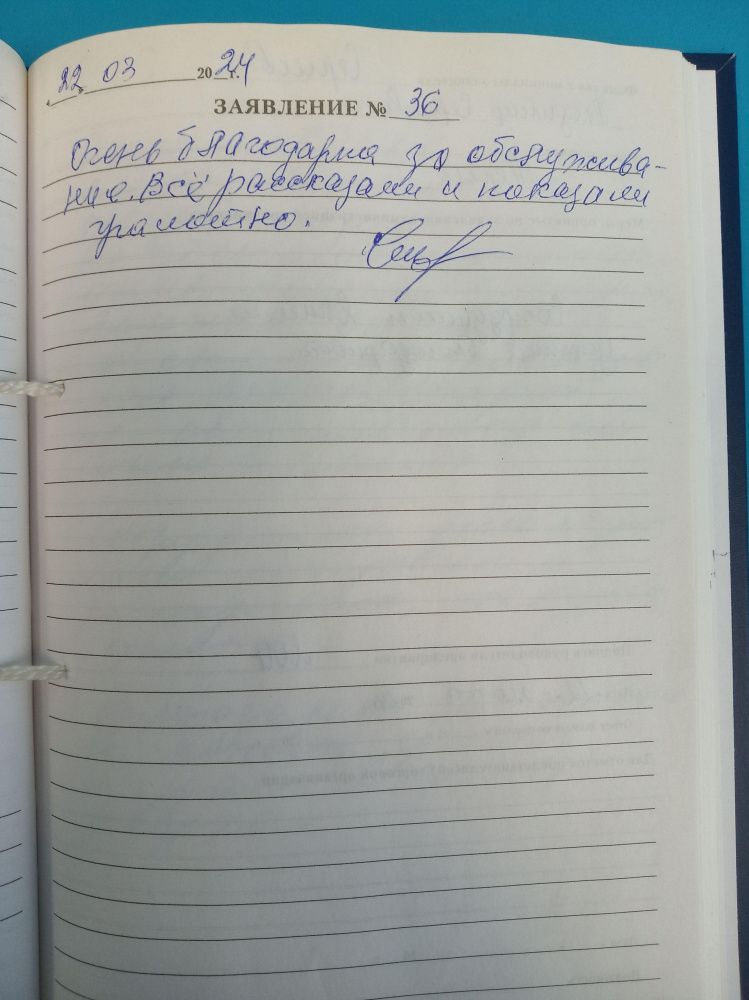 22 03 2024 г.
ЗАЯВЛЕНИЕ № 36
Очень благодарна за обслужива-
ние. Всё рассказали и показали
грамотно.